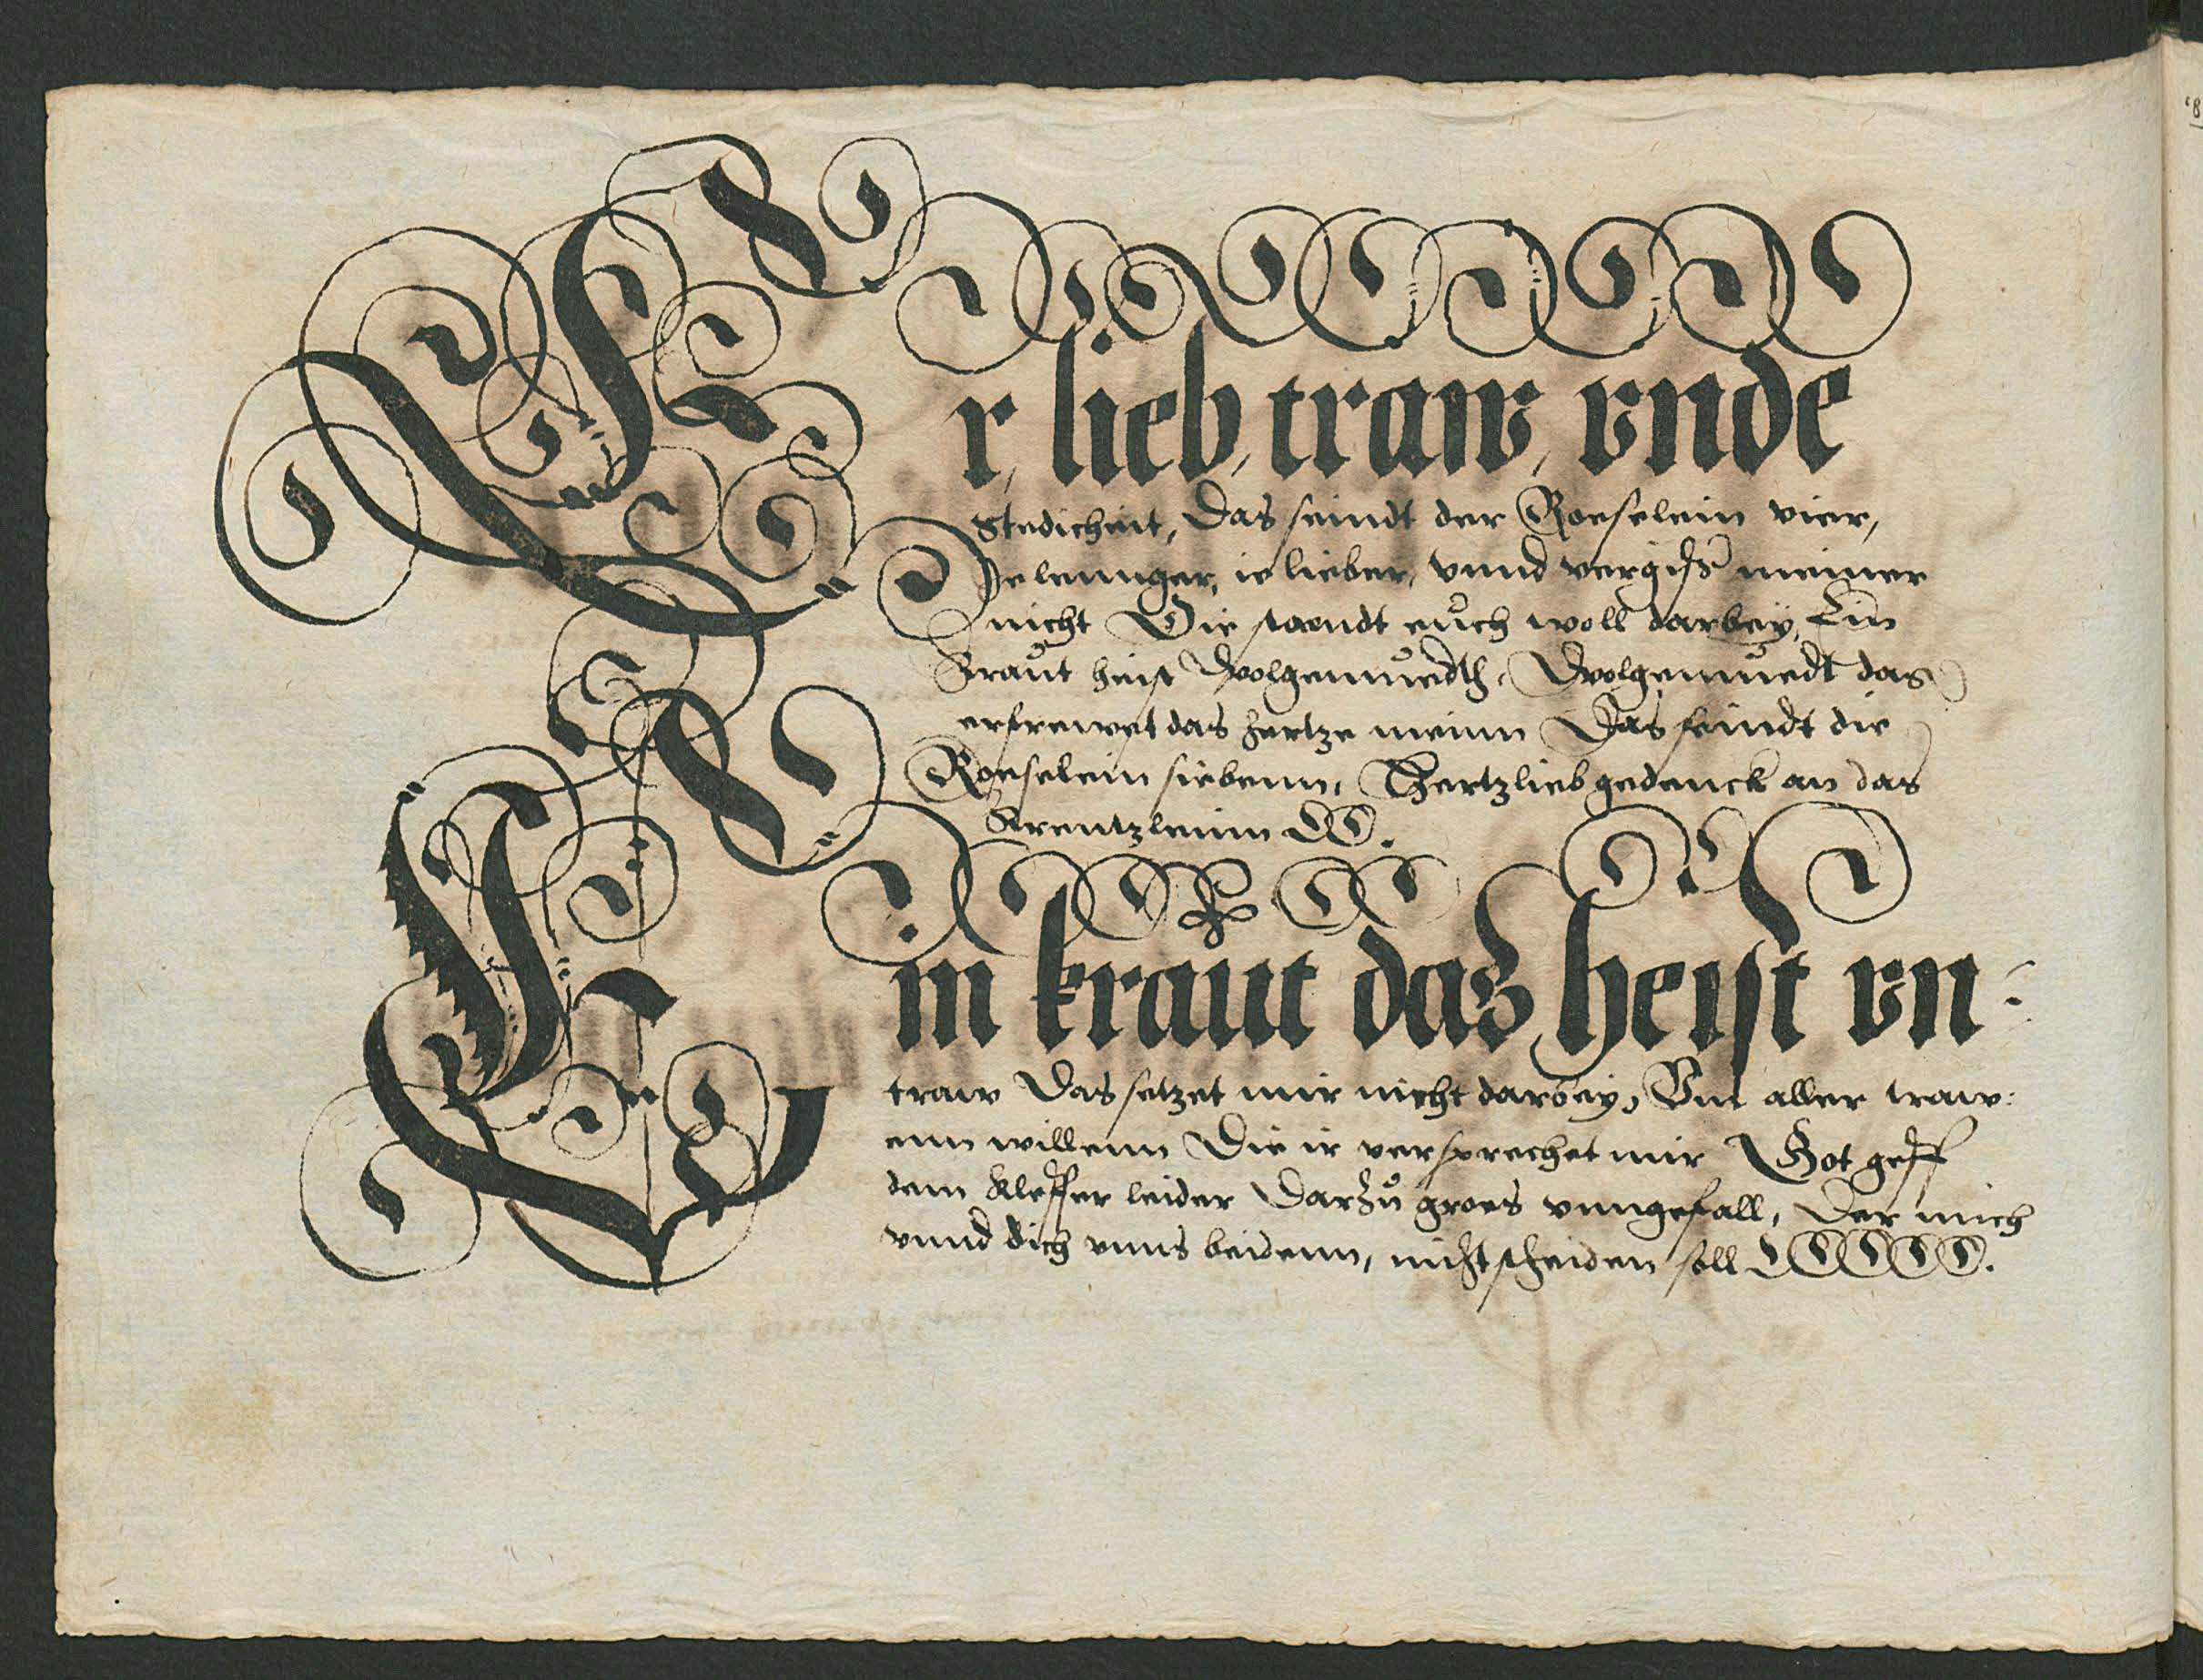 Er, lieb, traw, vnde
Stedicheit, Das seindt der Roeselein vier,
Je lennger, ie lieber, vnnd vergiß meiner
nicht Die staendt euch woll darbey, Ein
Kraut heist Wolgemuedth, Wolgemuedt das
erfrewet das hertze meinn Das seindt die
Roeselein siebenn, Hertzlieb gedenck an das
Krentzleinn
Ein kraut das heist vn-
traw Das setzet mir nicht darbey, Vm aller traw:
enn willenn Die ir versprechet mir Got geff
dem kleffer leider Darzu groes vnngefall, Der mich
vnnd dich vnns beidenn, nicht scheiden soll